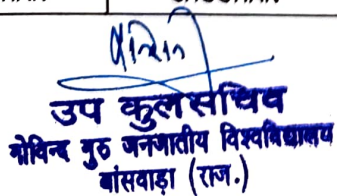 उप कुलसचिव
गोविन्द गुरु जनजातीय विश्वविद्यालय
बांसवाड़ा (राज.)